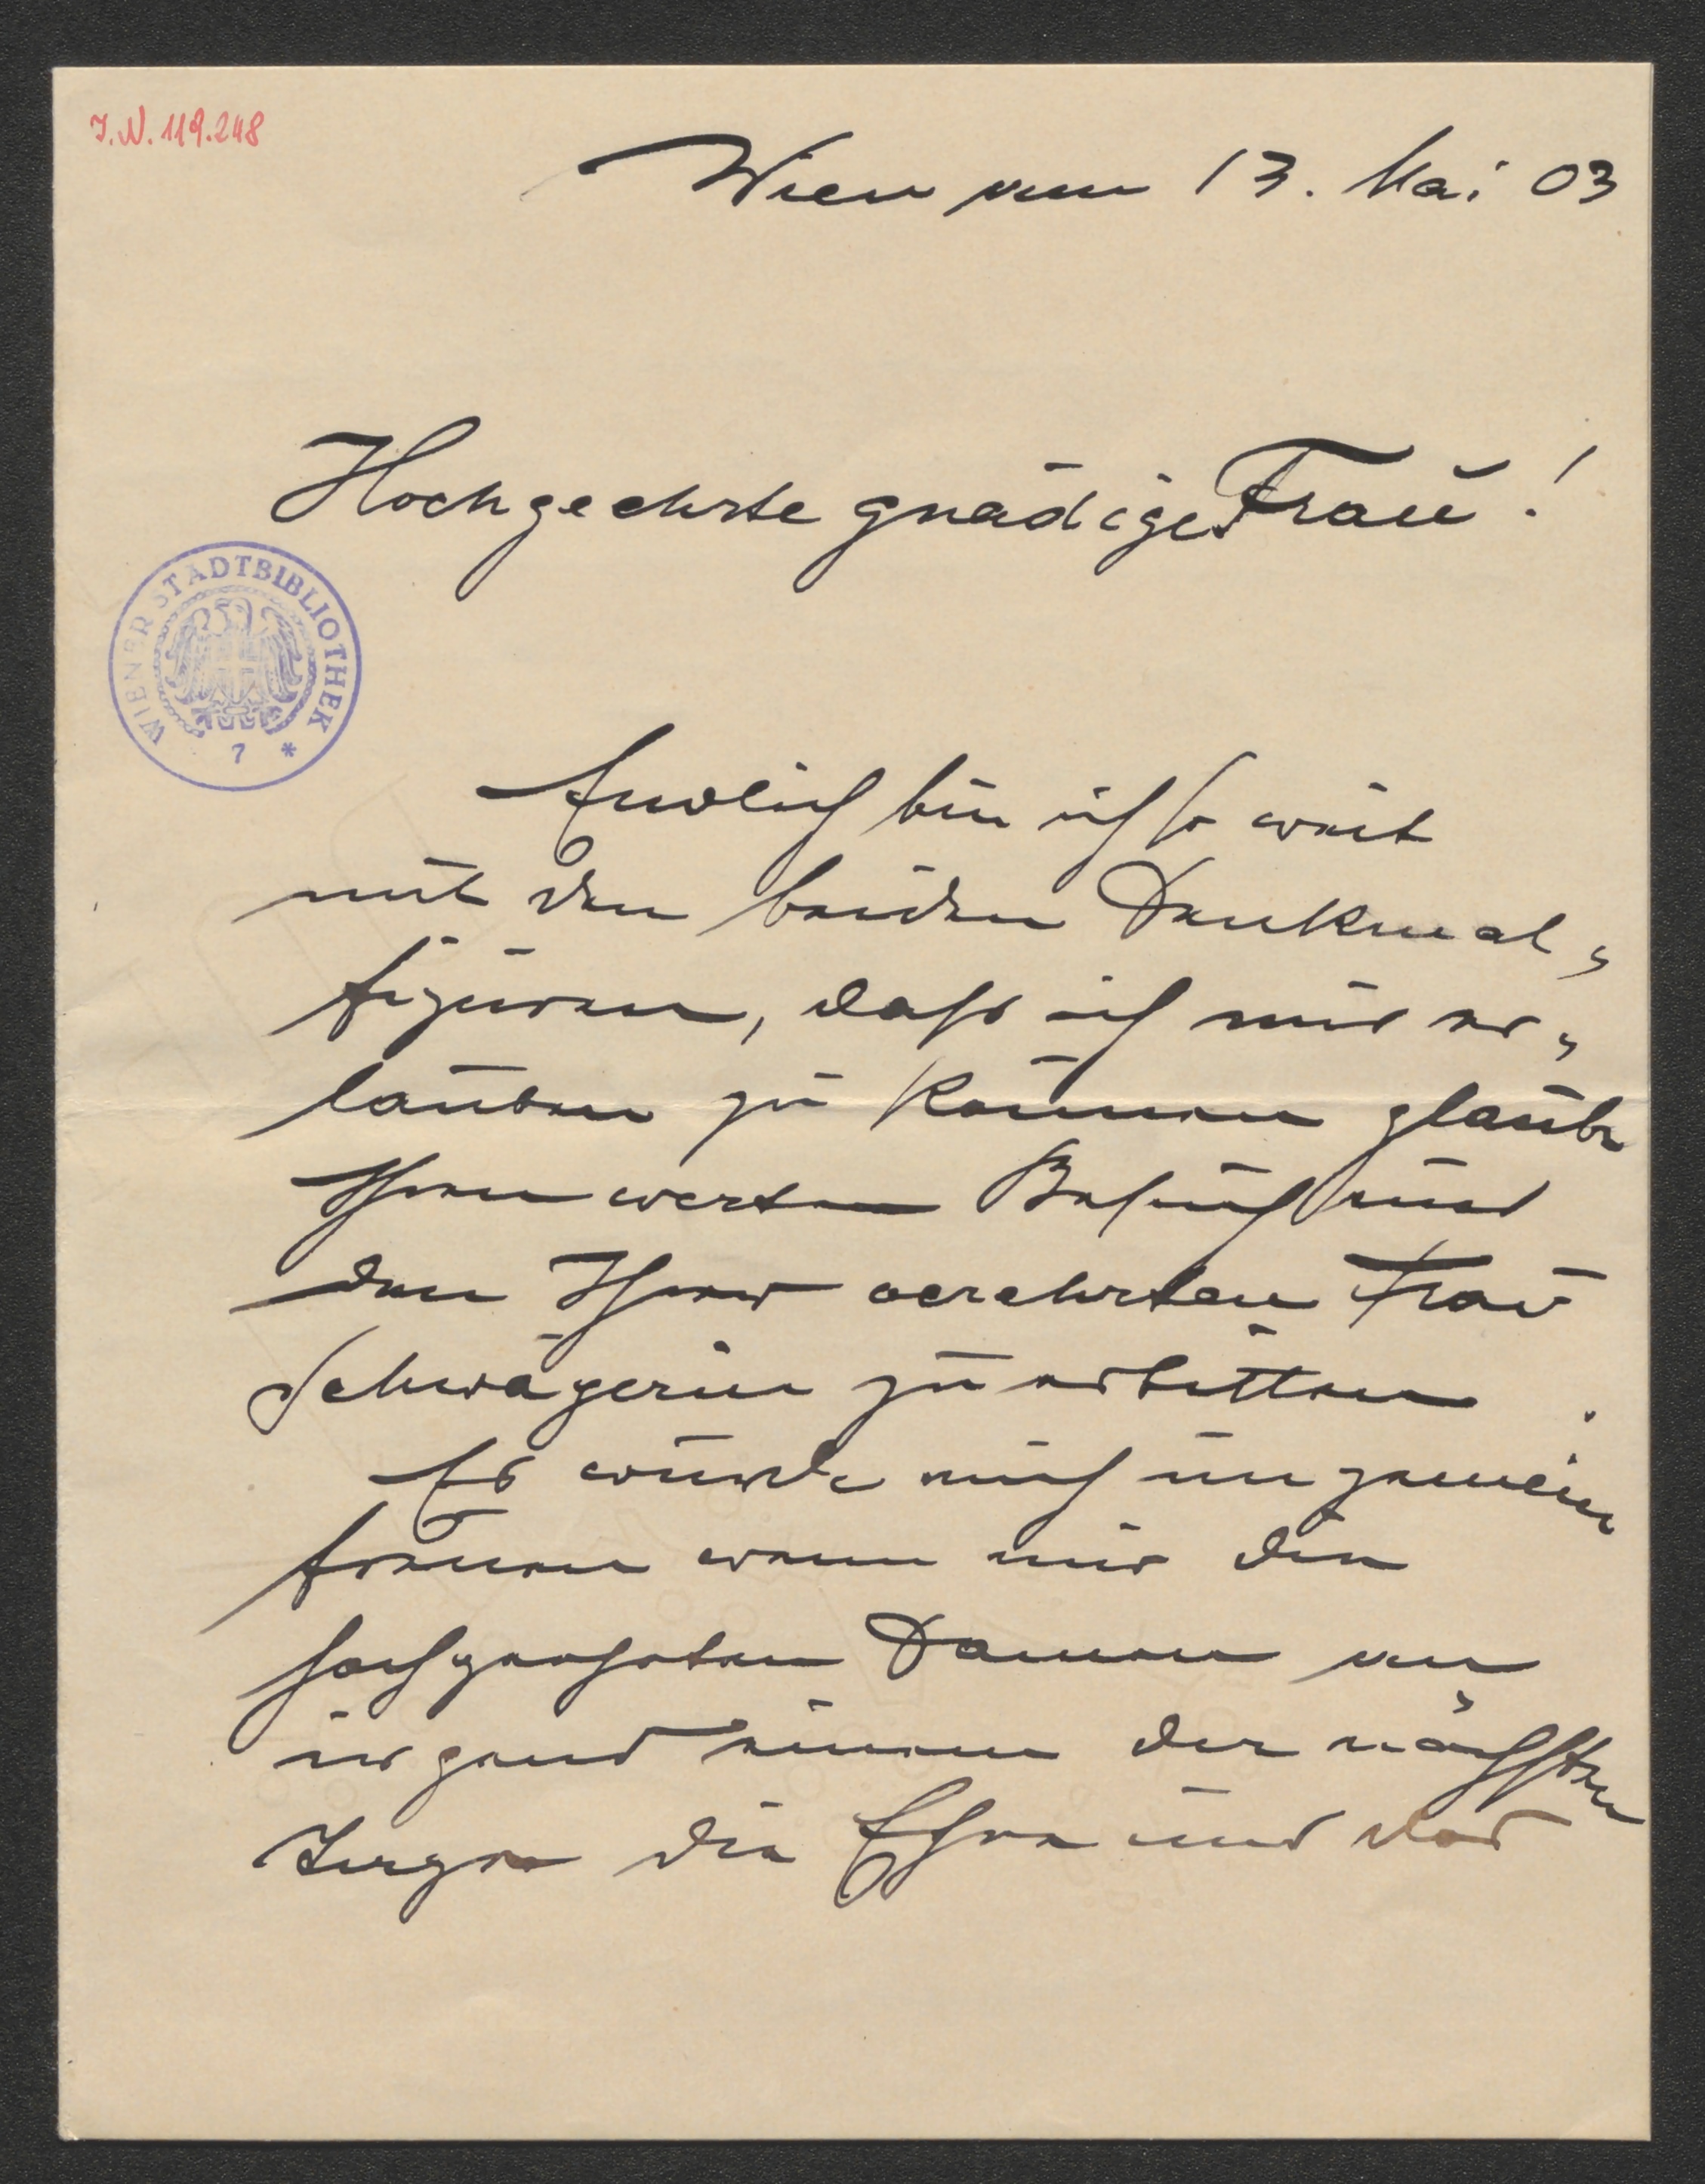 I.N. 119.248
Wien am 13. Mai 03
Hochgeehrte gnädige Frau!
WIENER STADTBIBLIOTHEK
7 *
Endlich bin ich so weit
mit den beiden Denkmal„
figuren, dass ich mir er„
lauben zu können glaube
Ihren werten Besuch und
den Ihrer verehrten Frau
Schwägerin zu erbitten.
Es würde mich ungemein
freuen wenn mir die
hochgeehrten Damen an
irgend einem der nächsten
Tage die Ehre und das